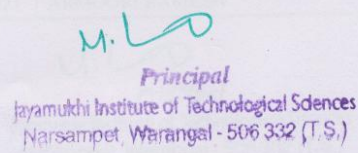 Principal
Jayamukhi Institute of Technological Sciences
Narsampet, Warangal - 506 332 (T.S.)